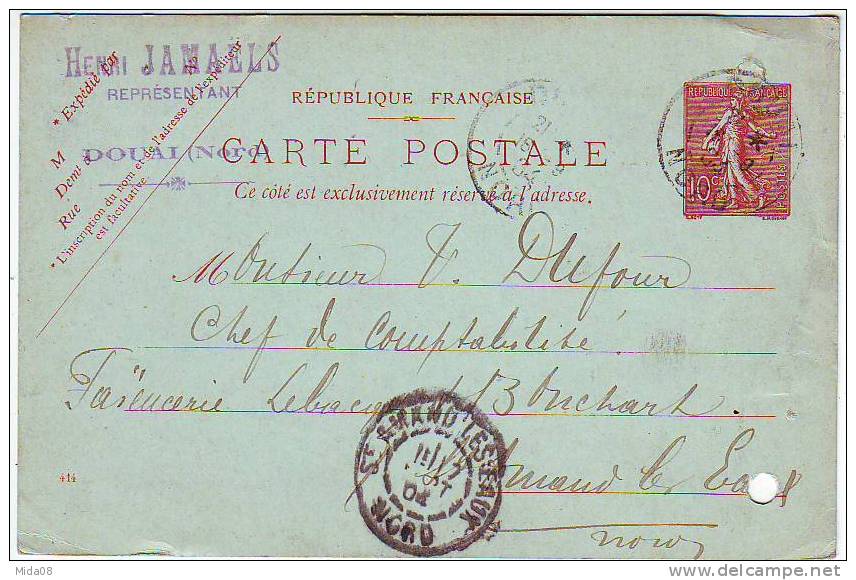 HENRI JAMAELS
REPRÉSENTANT
DOUAI (Nord)
* Expédié par
M
Demt à
Rue
N°
* L'inscription du nom et de l'adresse de l'expéditeur
est facultative
RÉPUBLIQUE FRANÇAISE
CARTE POSTALE
Ce côté est exclusivement réservé à l'adresse.
REPUBLIQUE FRANÇAISE
10c
POSTES
NORD
Monsieur V. Dufour
Chef de Comptabilité
Faïencerie Bouchart
St Amand les Eaux
Nord
ST AMAND LES EAUX
04
NORD
414
Mida08
www.delcampe.net